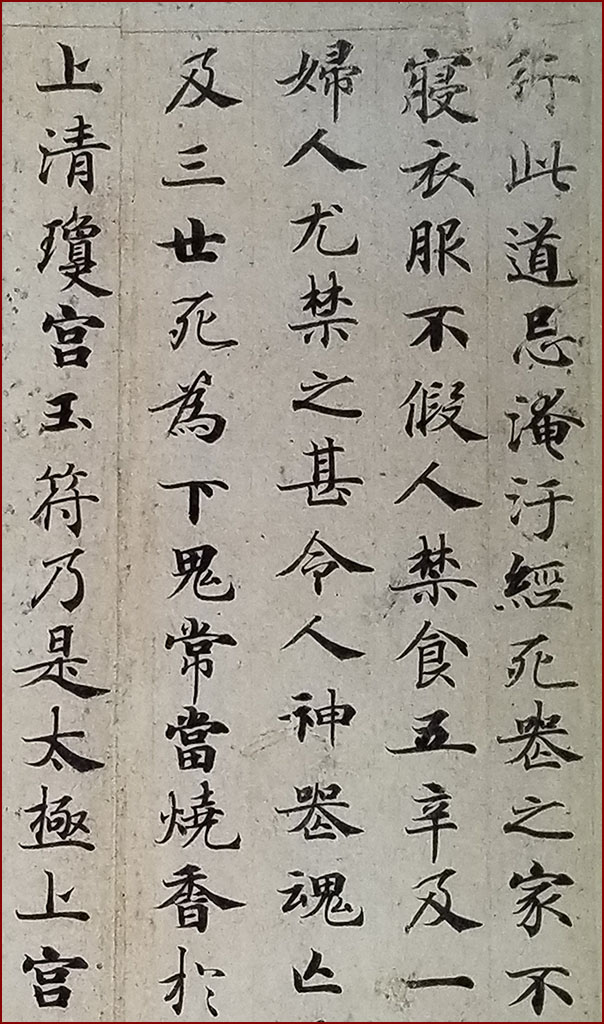 行此道忌淹汙經死喪之家不
寢衣服不假人禁食五辛及一
婦人尤禁之甚令人神喪魂亡
及三世死為下鬼常當燒香於
上清瓊宮玉符乃是太極上宮